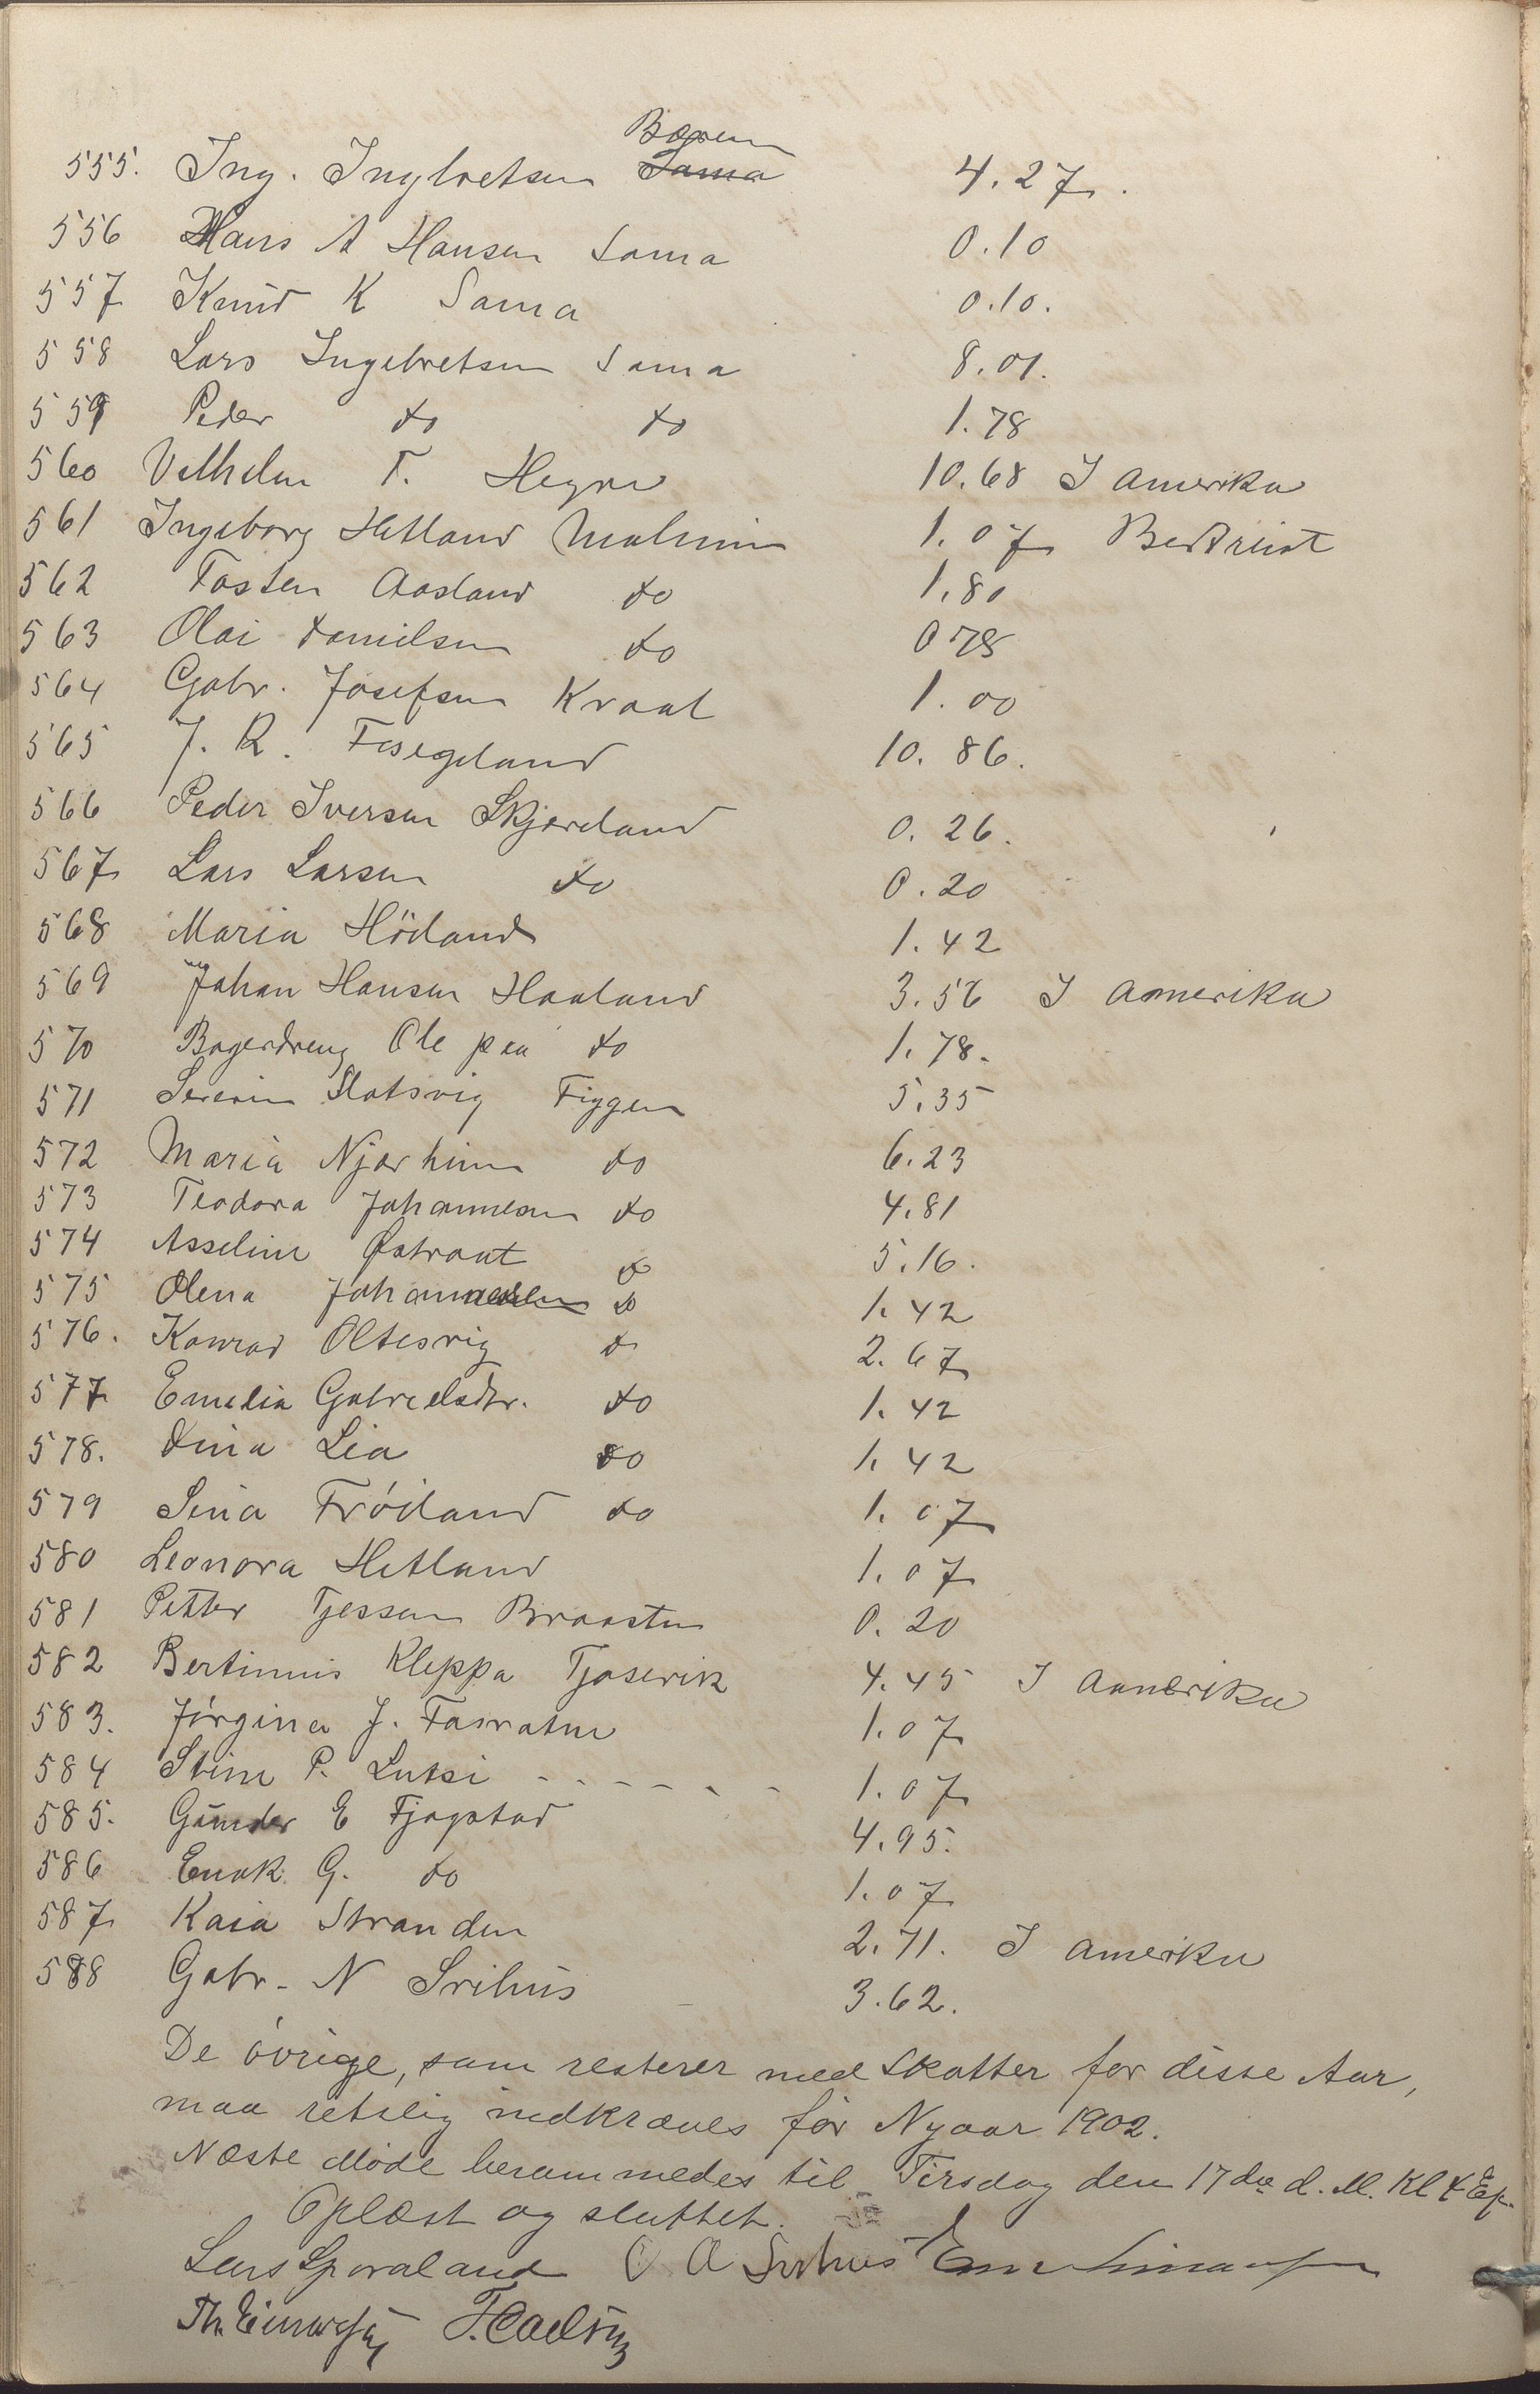 Boren
555. Ing. Ingbretsen Soma 4.27.
556 Hans A Hansen Soma 0.10
557 Knud K Soma 0.10.
558 Lars Ingebretsen Soma 8.01.
559 Peder do do 1.78
560 Vilhelm T. Hegre 10.68 I Amerika
561 Ingeborg Hetland Malmin 1.07
562 Tosten Aasland do 1.80
563 Olai Danielsen do 0 78
564 Gabr. Josefsen Kraal 1.00
565 J. R. 10.86.
566 Peder Iversen Skjæveland 0.26.
567 Lars Larsen do 0.20
568 Maria Höiland 1.42
569 Johan Hansen Haaland 3.56 I Amerika
570 Bagerdreng Ole paa do 1.78.
571 Severin Slotsvig Figgen 5.35
572 Maria Njærheim do 6.23
573 Teodora Johannesen do 4.81
574 Asseline Østraat do 5.16.
575 Olena Johannesen do 1.42
576. Konrad Oltesvig do 2.67
577 Emelia Gabrielsdtr. do 1.42
578. Dina Lea do 1.42
579 Sina Fröiland do 1.07
580 Leonora Hetland 1.07
581 Petter Tjessem Braasten 0.20
582 Bertinius Kleppa Tjosevik 4.45 I Amerika
583. Jörgina J. Fasvatne 1.07
584 Stine P. Lutsi - - - - - - 1.07
585. Gunder E Fjogstad 4.95.
586 Enok G. do 1.07
587 Kaia Stranden 2.71. I Amerika
588 Gabr. N Svihus 3.62.
De övrige, som resterer med Skatter for disse Aar,
maa retslig indkræves för Nyaar 1902.
Næste Möde berammedes til Tirsdag den 17de d. M. Kl 4 Ef.
Oplæst og sluttet.
Lars Sporaland O A Svihus